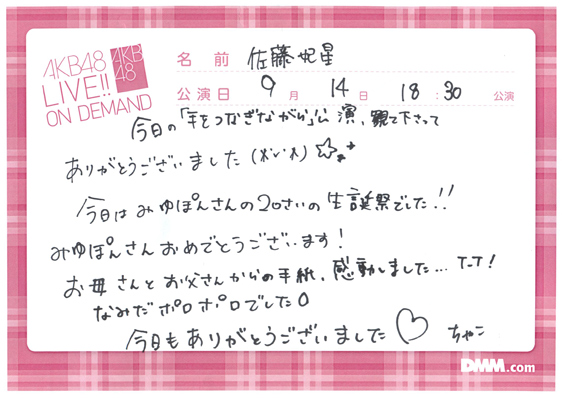 AKB48
LIVE!!
ON DEMAND
AKB
48
名前 佐藤妃星
公演日 9月 14日 18:30 公演
今日の「手をつなぎながら」公演、観て下さって
ありがとうございました(*´ω`*)☆
今日はみゆぽんさんの20さいの生誕祭でした!!
みゆぽんさんおめでとうございます!
お母さんとお父さんからの手紙、感動しました... T-T!
なみだポロポロでした
今日もありがとうございました♡ ちゃこ
DMM.com